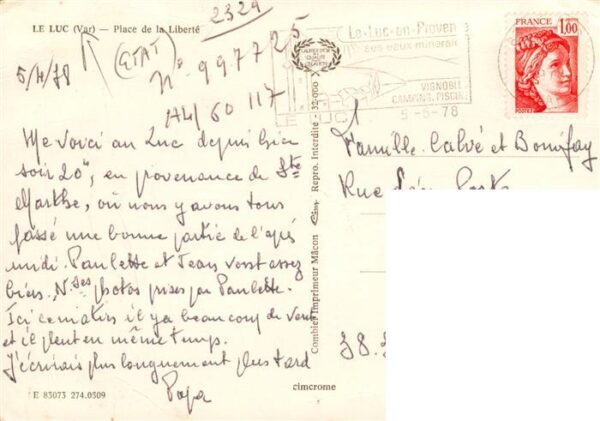 2329
LE LUC (Var) — Place de la Liberté
(ETAT)
5/4/78
N° 997725
A4/60 117
Me voici au Luc depuis hier
soir 20ʰ, en provenance de Ste
Marthe, où nous y avons tous
passé une bonne partie de l'après
midi. Paulette et Jean vont assez
bien. N.ses photos prises par Paulette.
Ici ce matin il y a beaucoup de vent
et il pleut en même temps.
J'écrirais plus longuement plus tard
Papa
E 83073 274.0309
cimcrome
Combier Imprimeur Mâcon
Repro. Interdite - 32.000
Le-Luc-en-Proven
ses eaux minérales
VIGNOBLE
CAMPING, PISCINE
LE LUC
5-5-78
FRANCE
1,00
POSTES
Famille Calvé et Bonifay
Rue
38.